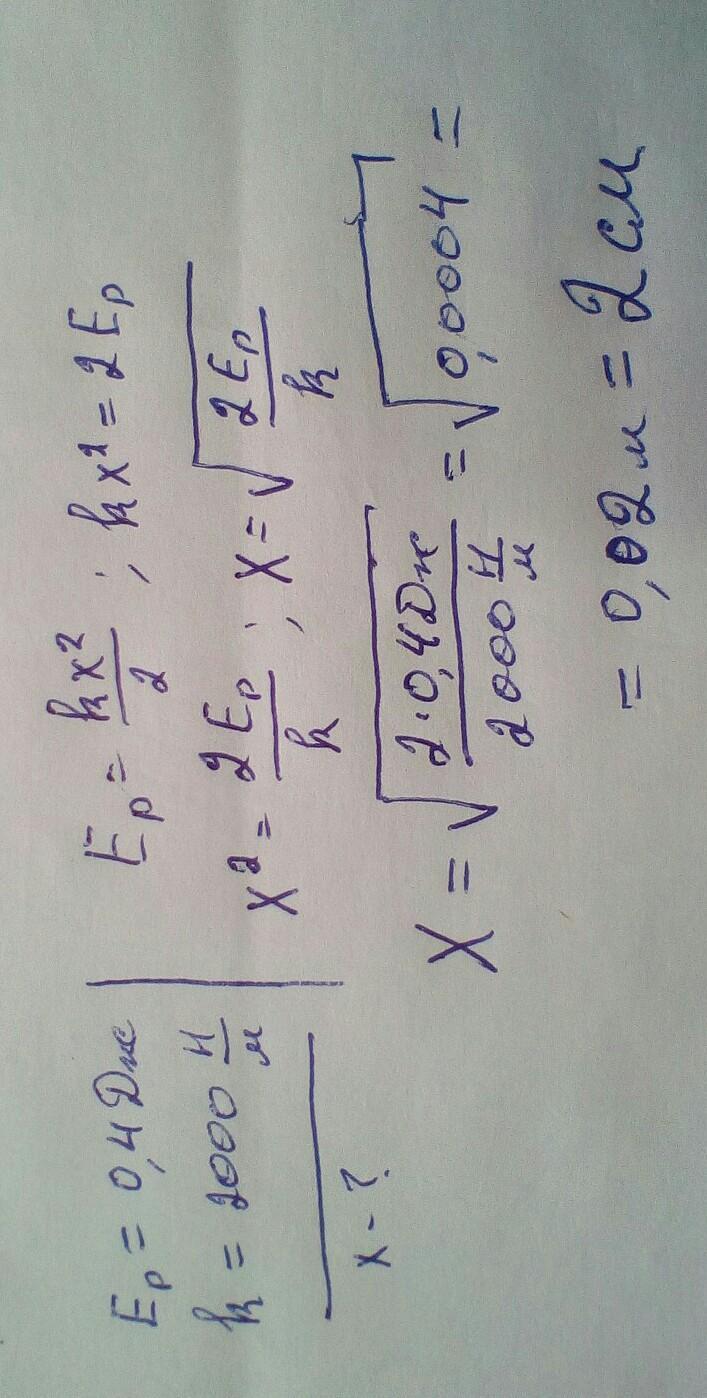 Eₚ = 0,4 Дж
k = 2000 Н/м
x - ?
Eₚ = kx²/2 ; kx² = 2Eₚ
x² = 2Eₚ/k ; x = √(2Eₚ/k)
x = √(2·0,4Дж / 2000 Н/м) = √0,0004 =
= 0,02м = 2см